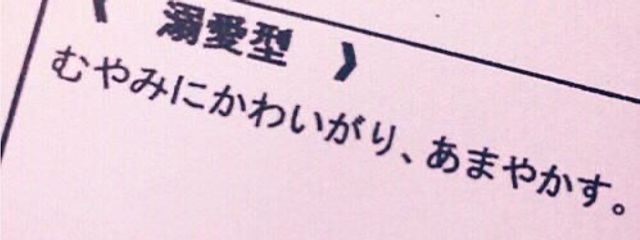 《 溺愛型 》
むやみにかわいがり、あまやかす。